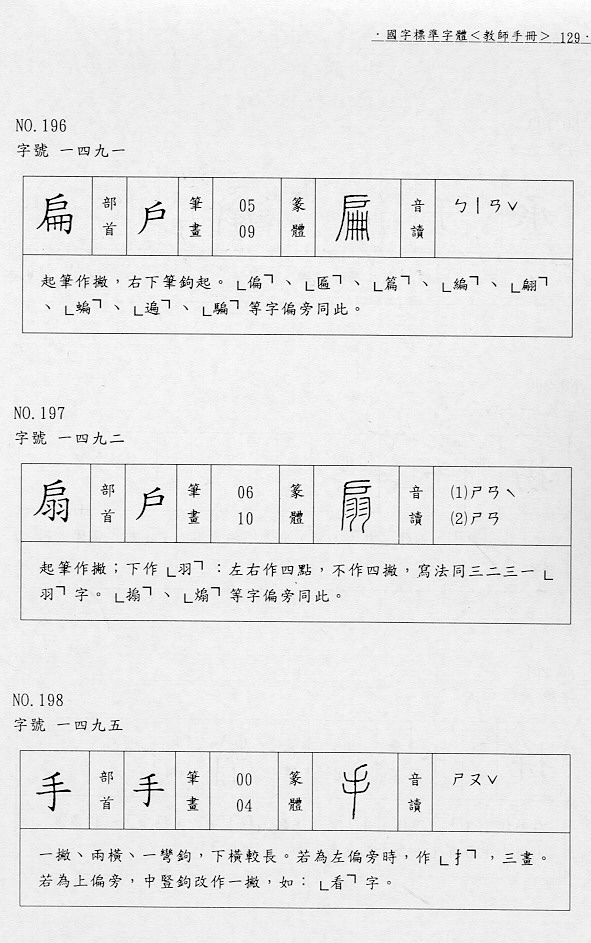 ·國字標準字體<教師手冊> 129·
NO.196
字號 一四九一
扁 部首 戶 筆畫 05 09 篆體 扁 音讀 ㄅㄧㄢˇ
起筆作撇，右下筆鉤起。「偏」、「匾」、「篇」、「編」、「翩」
、「蝙」、「遍」、「騙」等字偏旁同此。
NO.197
字號 一四九二
扇 部首 戶 筆畫 06 10 篆體 扇 音讀 ⑴ㄕㄢˋ ⑵ㄕㄢ
起筆作撇；下作「羽」：左右作四點，不作四撇，寫法同三二三一「
羽」字。「搧」、「煽」等字偏旁同此。
NO.198
字號 一四九五
手 部首 手 筆畫 00 04 篆體 手 音讀 ㄕㄡˇ
一撇、兩橫、一彎鉤，下橫較長。若為左偏旁時，作「扌」，三畫。
若為上偏旁，中豎鉤改作一撇，如：「看」字。